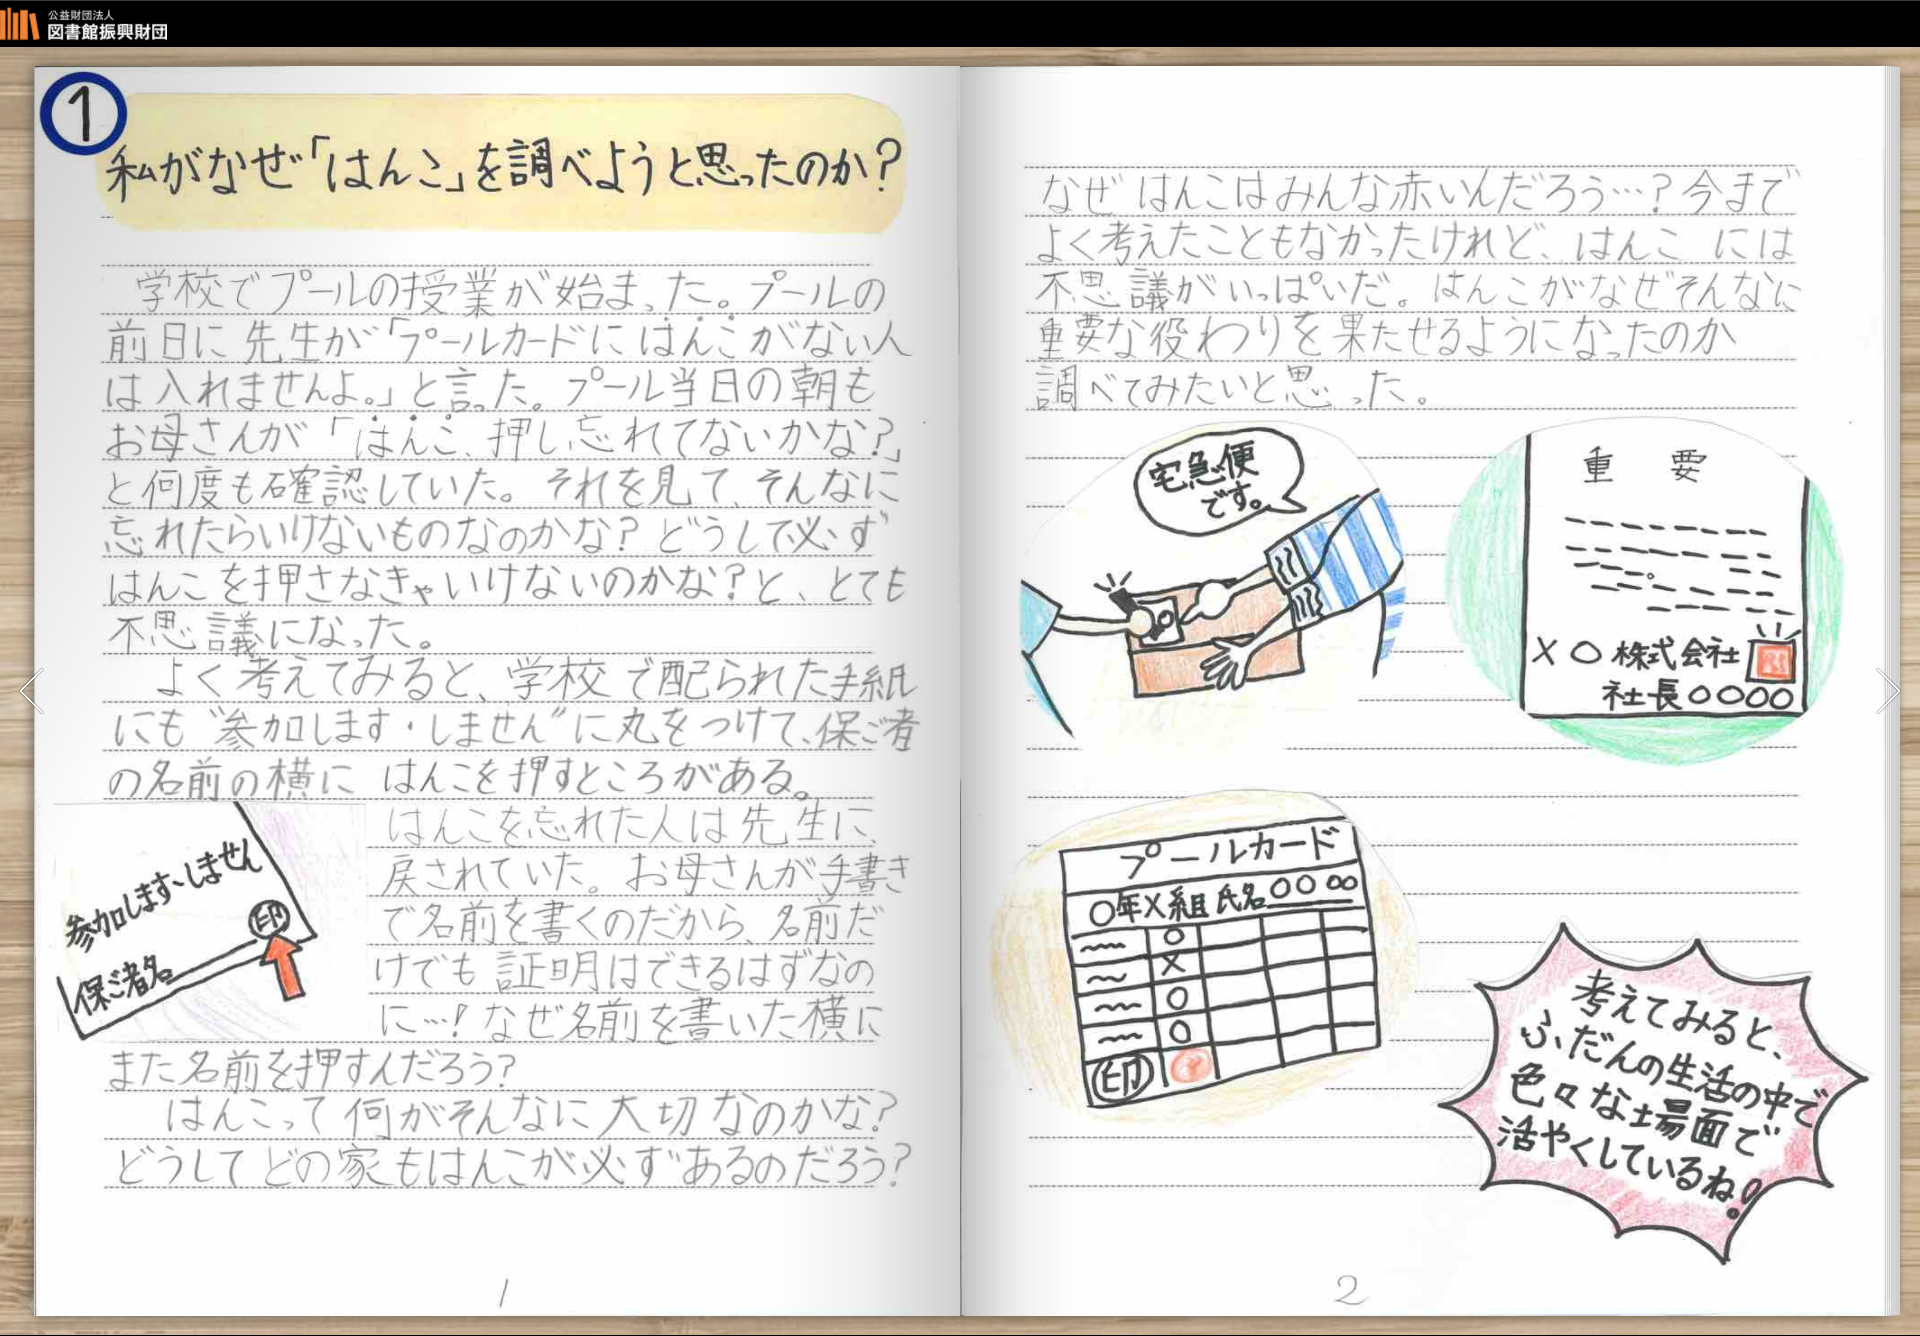 公益財団法人
図書館振興財団
1
私がなぜ「はんこ」を調べようと思ったのか?
学校でプールの授業が始まった。プールの
前日に先生が「プールカードにはんこがない人
は入れませんよ。」と言った。プール当日の朝も
お母さんが「はんこ、押し忘れてないかな?」
と何度も確認していた。それを見て、そんなに
忘れたらいけないものなのかな?どうして必ず
はんこを押さなきゃいけないのかな?と、とても
不思議になった。
よく考えてみると、学校で配られた手紙
にも“参加します・しません”に丸をつけて、保ご者
の名前の横にはんこを押すところがある。
はんこを忘れた人は先生に、
戻されていた。お母さんが手書き
で名前を書くのだから、名前だ
けでも証明はできるはずなの
に…!なぜ名前を書いた横に
また名前を押すんだろう?
はんこって何がそんなに大切なのかな?
どうしてどの家もはんこが必ずあるのだろう?
参加します、しません
印
保ご者名
1
なぜはんこはみんな赤いんだろう…?今まで
よく考えたこともなかったけれど、はんこには
不思議がいっぱいだ。はんこがなぜそんなに
重要な役わりを果たせるようになったのか
調べてみたいと思った。
宅急便
です。
重要
×○株式会社
社長○○○○
プールカード
○年×組 氏名○○○○
○
×
○
○
印
考えてみると、
ふだんの生活の中で
色々な場面で
活やくしているね!
2